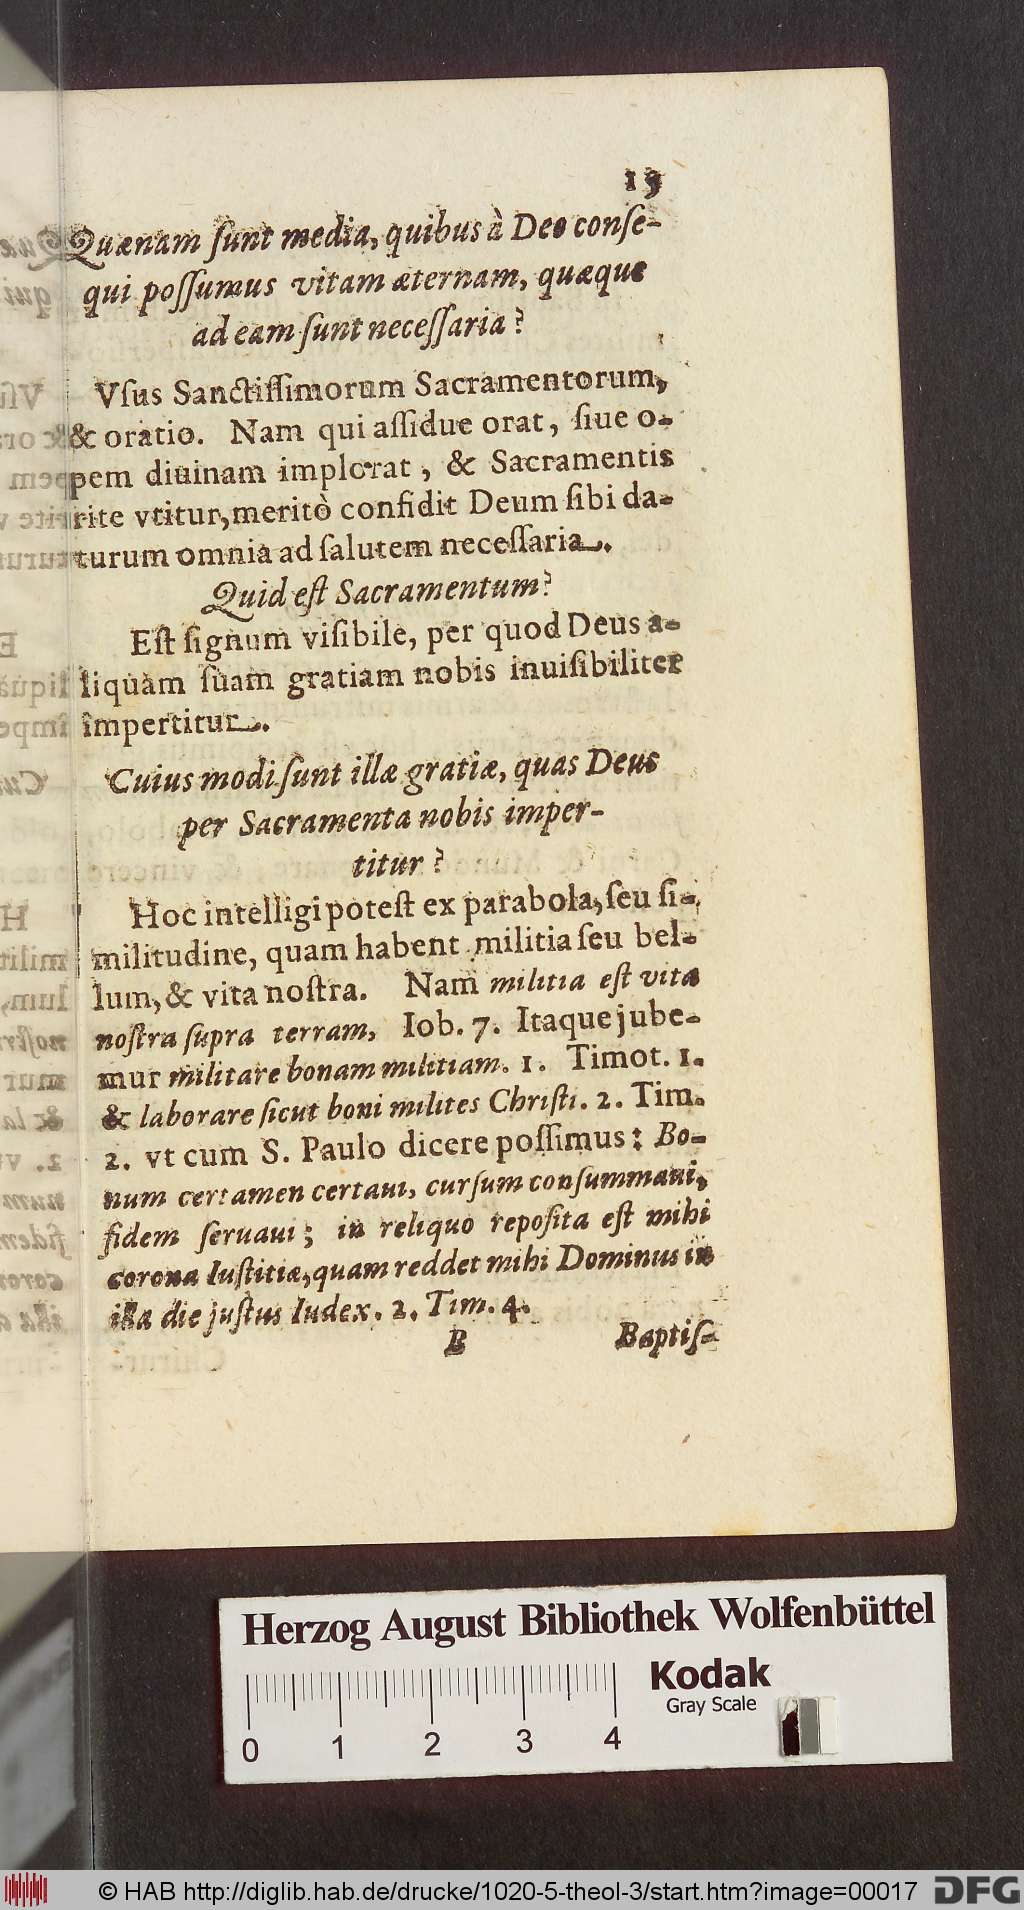 19
Quænam ſunt media, quibus à Deo conſe-
qui poſſumus vitam æternam, quæque
ad eam ſunt neceſſaria?
Vſus Sanctiſſimorum Sacramentorum,
& oratio. Nam qui aſſidue orat, ſiue o-
pem diuinam implorat, & Sacramentis
rite vtitur, meritò confidit Deum ſibi da-
turum omnia ad ſalutem neceſſaria.
Quid eſt Sacramentum?
Eſt ſignum viſibile, per quod Deus a-
liquam ſuam gratiam nobis inuiſibiliter
impertitur.
Cuius modi ſunt illæ gratiæ, quas Deus
per Sacramenta nobis imper-
titur?
Hoc intelligi poteſt ex parabola, ſeu ſi-
militudine, quam habent militia ſeu bel-
lum, & vita noſtra. Nam militia eſt vita
noſtra ſupra terram, Iob. 7. Itaque jube-
mur militare bonam militiam. 1. Timot. 1.
& laborare ſicut boni milites Chriſti. 2. Tim.
2. vt cum S. Paulo dicere poſſimus: Bo-
num certamen certaui, curſum conſummaui,
fidem ſeruaui; in reliquo repoſita eſt mihi
corona Iuſtitiæ, quam reddet mihi Dominus in
illa die juſtus Iudex. 2. Tim. 4.
B Baptiſ-
Herzog August Bibliothek Wolfenbüttel
Kodak
Gray Scale
0 1 2 3 4
© HAB http://diglib.hab.de/drucke/1020-5-theol-3/start.htm?image=00017 DFG